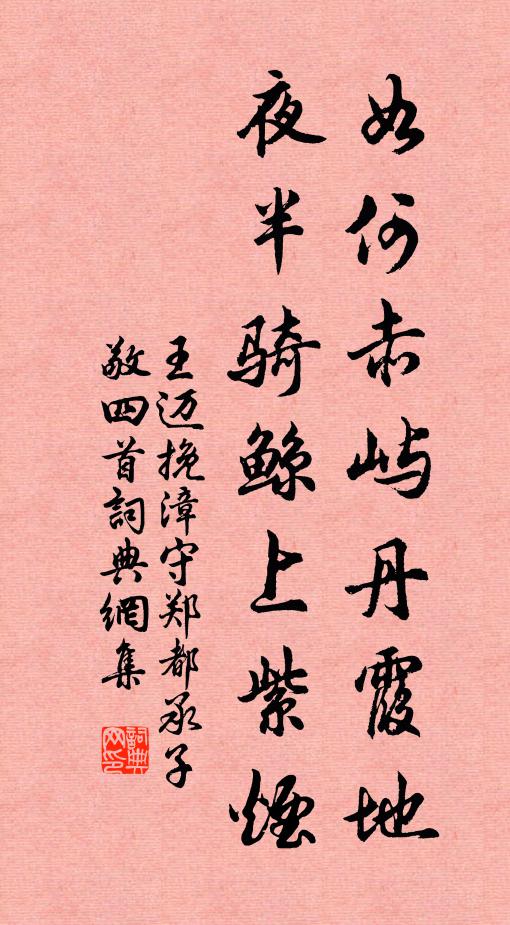 如何赤屿丹霞地
夜半骑鲸上紫烟
王迈挽漳守郑都承子
敬四首詞典網集
詞典
网印